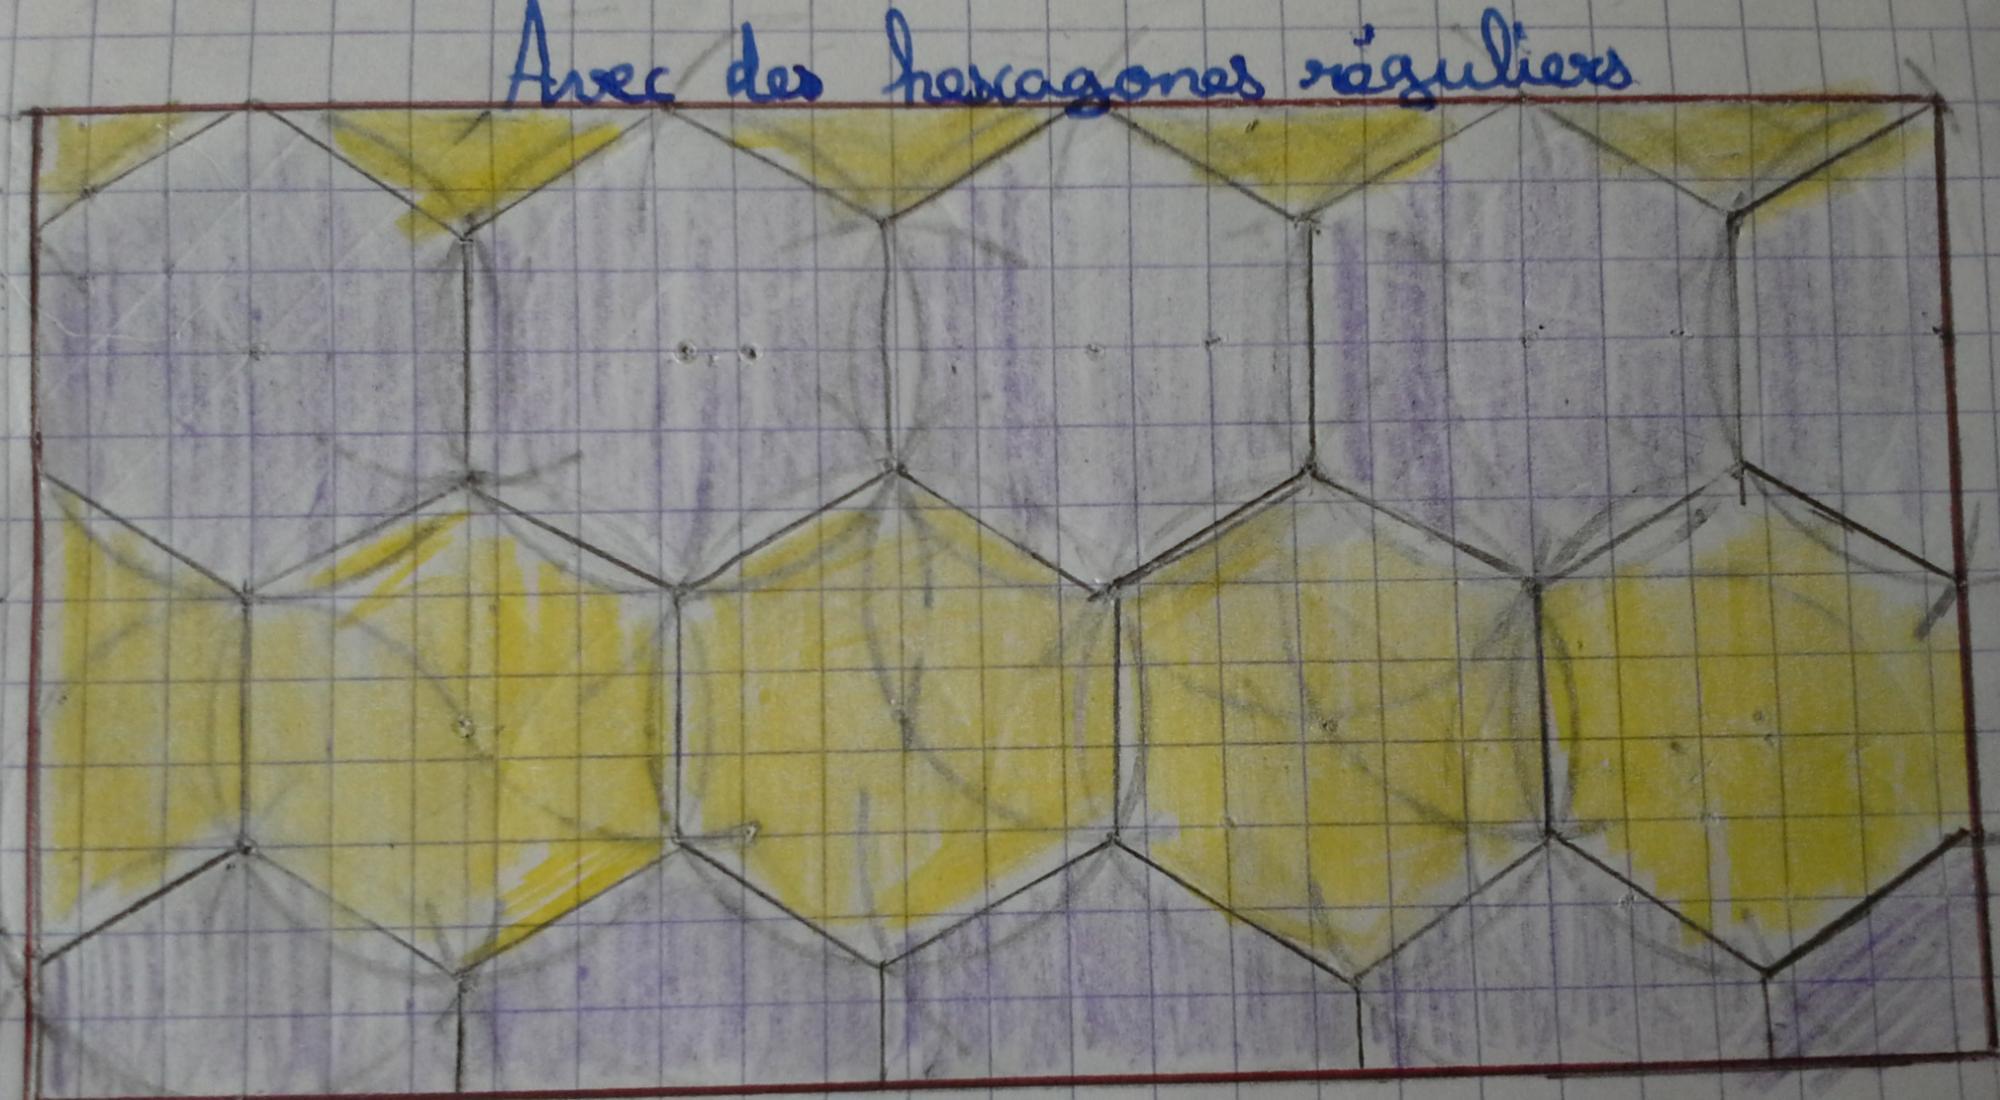 Avec des hexagones réguliers